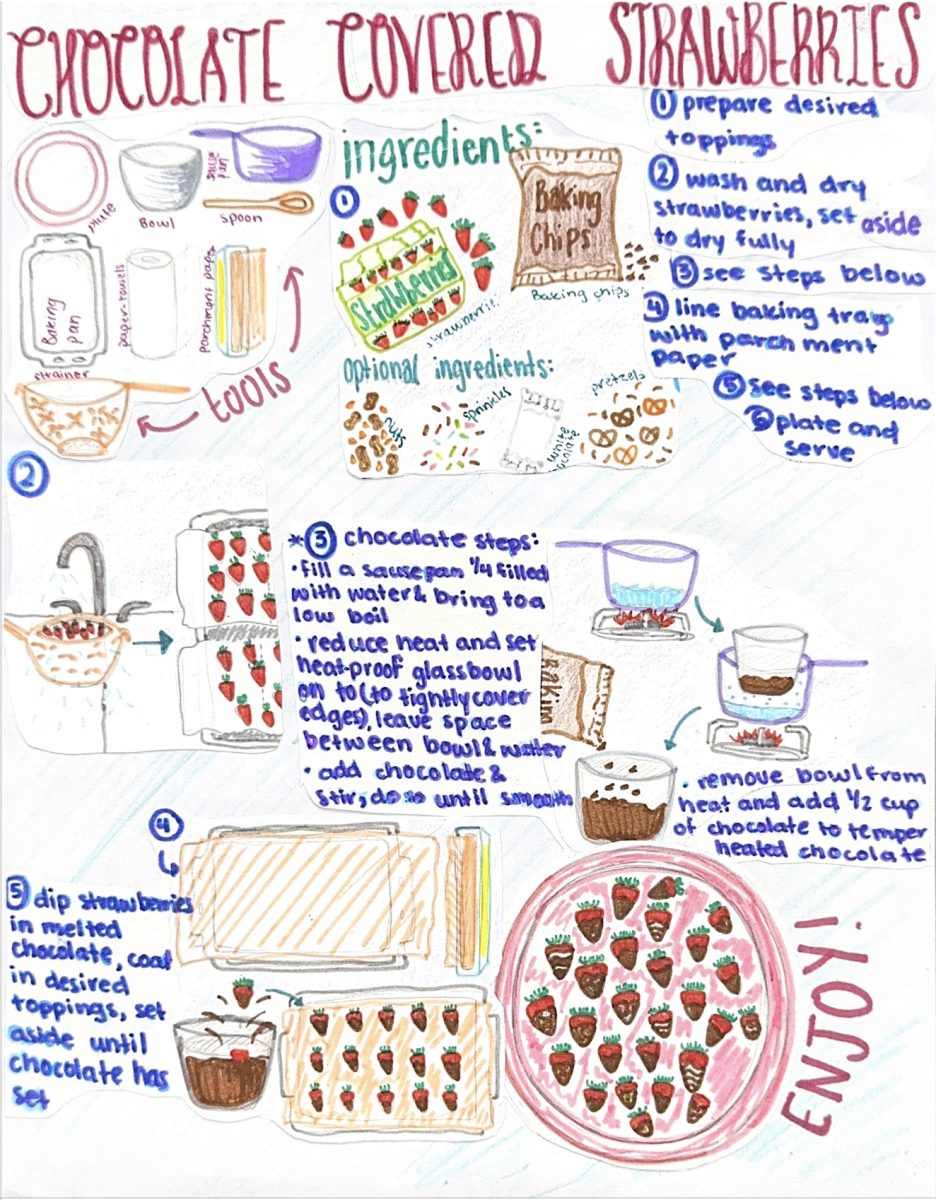 CHOCOLATE COVERED STRAWBERRIES
plate
Bowl
sauce
pan
spoon
Baking
pan
paper-towels
parchment paper
strainer
tools
ingredients:
①
Strawberries
strawberries
Baking
Chips
Baking chips
Optional ingredients:
nuts
sprinkles
white
pretzels
① prepare desired
toppings
② wash and dry
strawberries, set aside
to dry fully
③ see steps below
④ line baking tray
with parchment
paper
⑤ see steps below
⑥ plate and
serve
②
*③ chocolate steps:
• fill a sausepan 1/4 filled
with water & bring to a
low boil
• reduce heat and set
heat-proof glass bowl
on to (to tightly cover
edges), leave space
between bowl & water
• add chocolate &
stir, do so until smooth
• remove bowl from
heat and add 1/2 cup
of chocolate to temper
heated chocolate
④
⑤ dip strawberries
in melted
chocolate, coat
in desired
toppings, set
aside until
chocolate has
set
ENJOY!